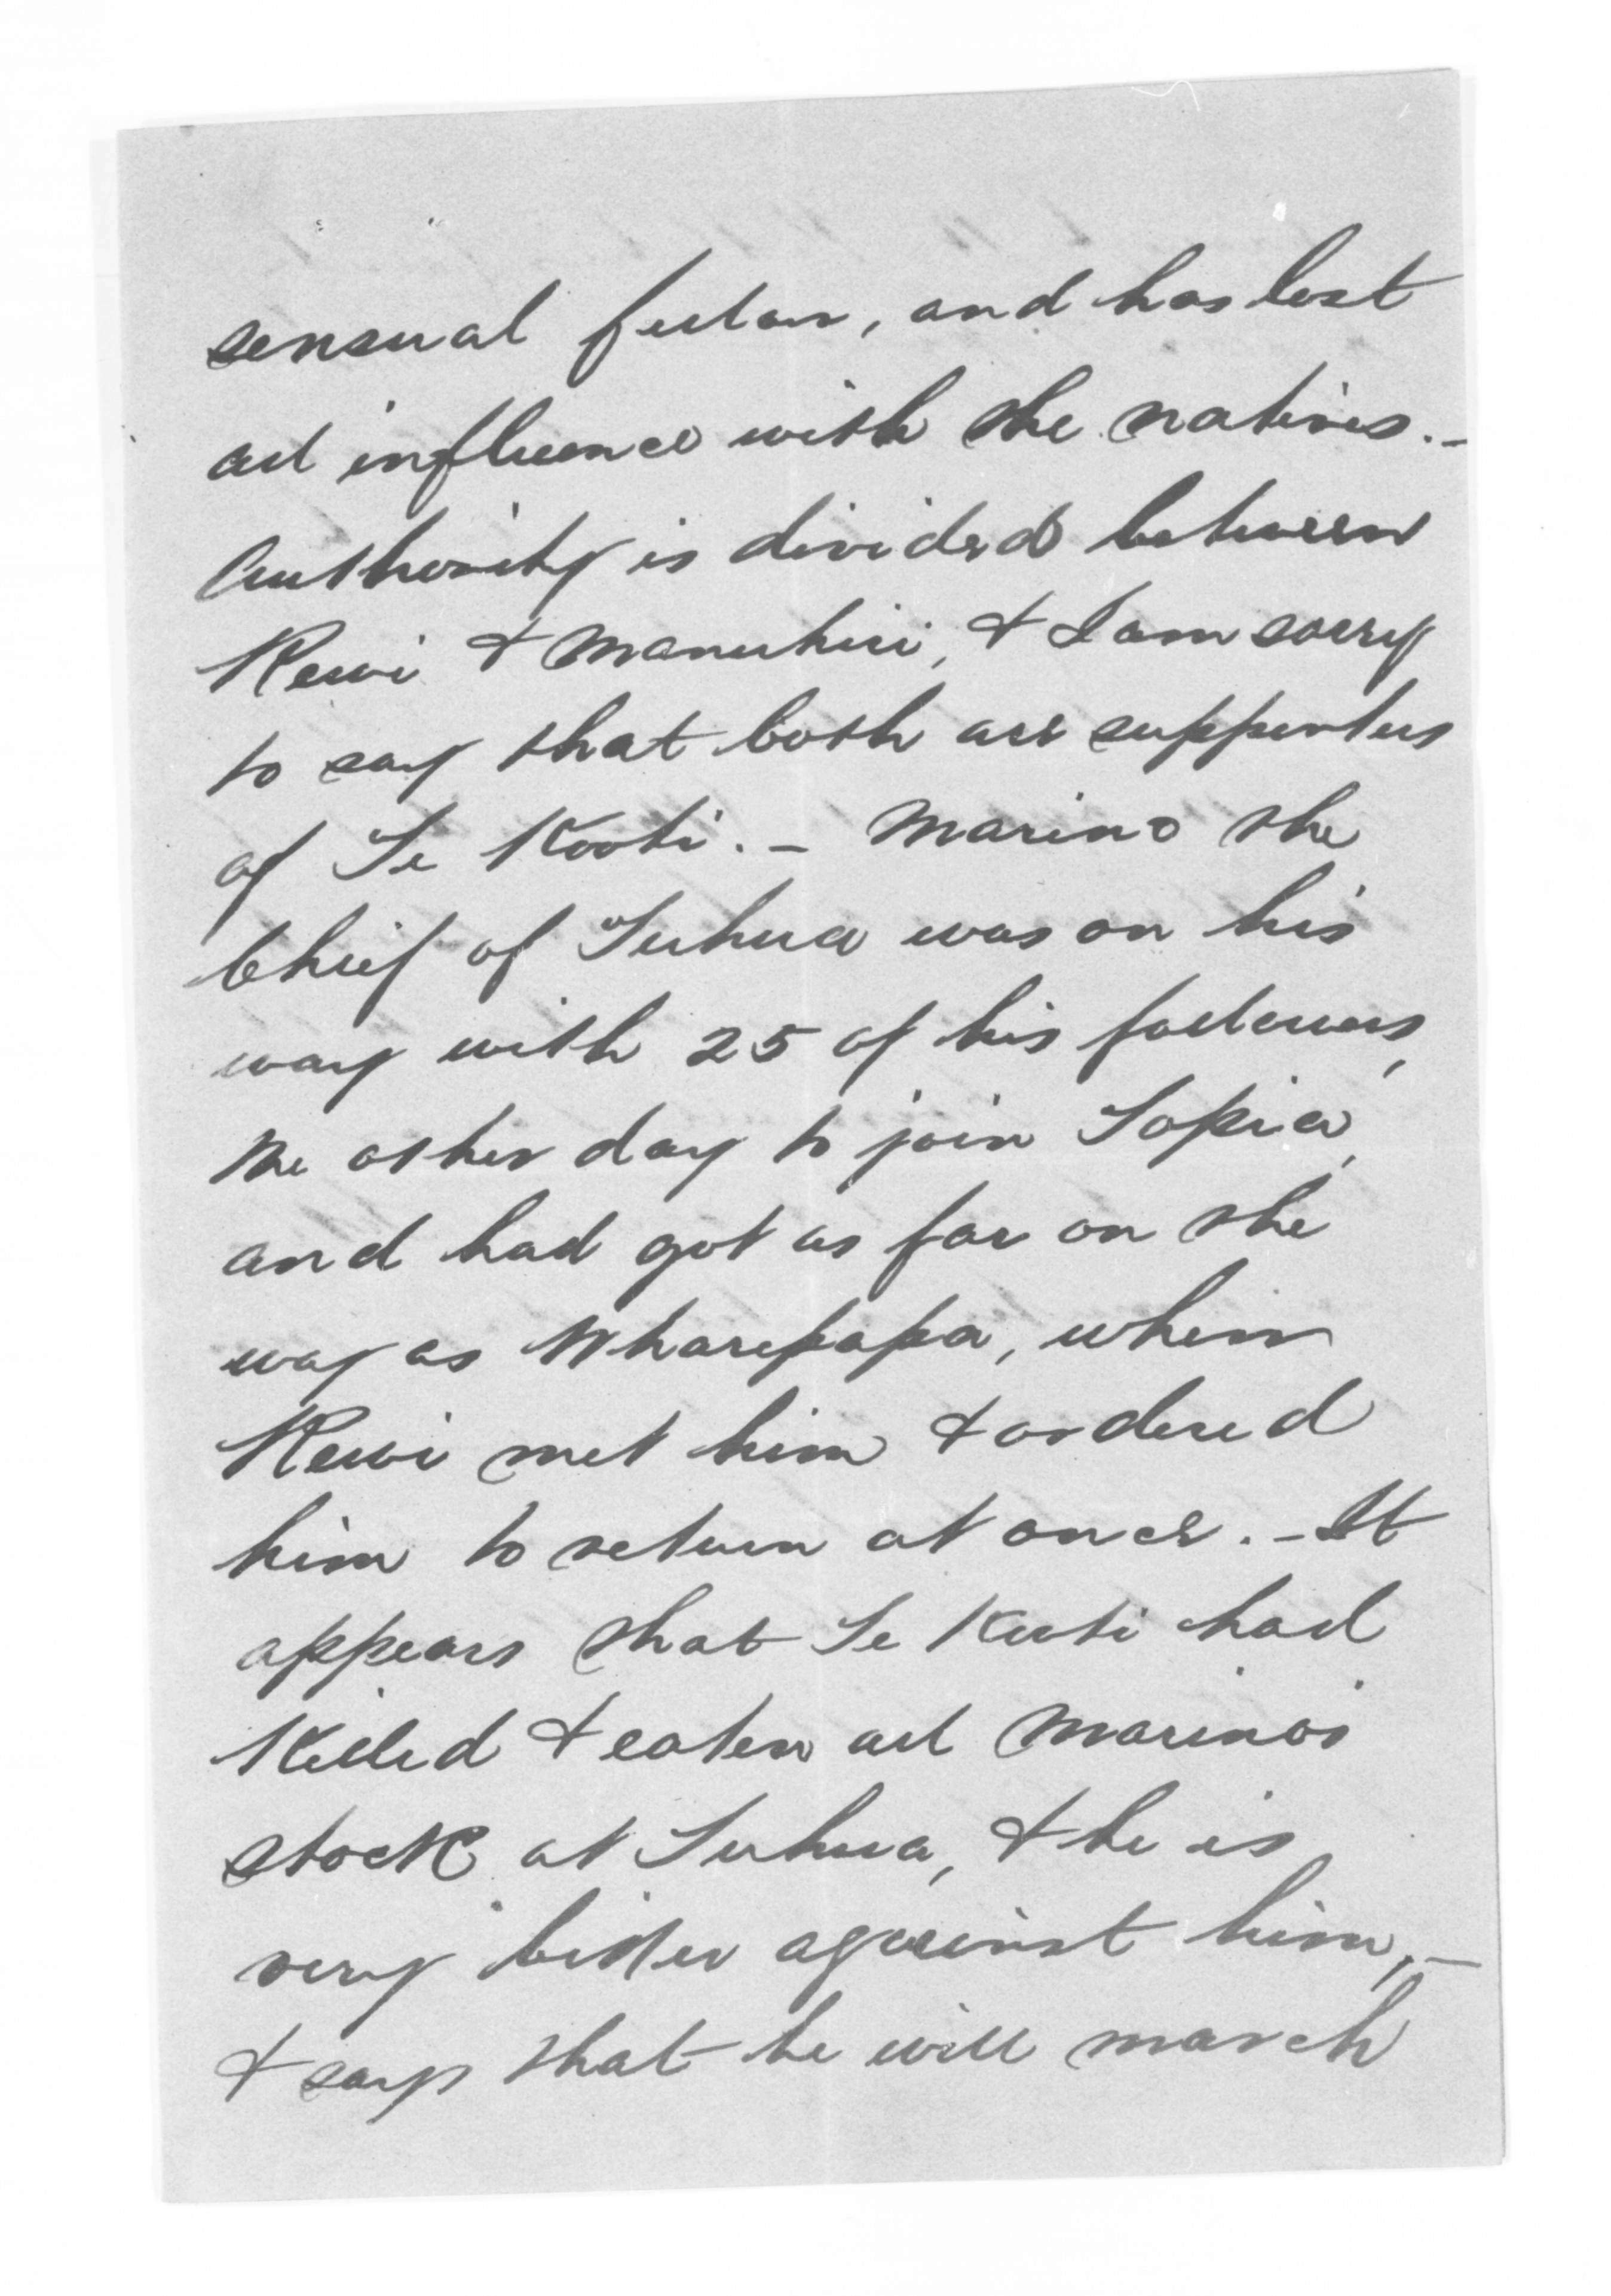 sensual fellow, and has lost
all influence with the natives. -
Authority is divided between
Rewi & Manuhiri, & I am sorry
to say that both are supporters
of Te Kooti. - Marino the
Chief of Tuhua was on his
way with 25 of his followers,
the other day to join Topia,
and had got as far on the
way as Wharepapa, when
Rewi met him & ordered
him to return at once. - It
appears that Te Kooti had
Killed & eaten all Marino's
stock at Tuhua, & he is
very bitter against him, -
& says that he will march